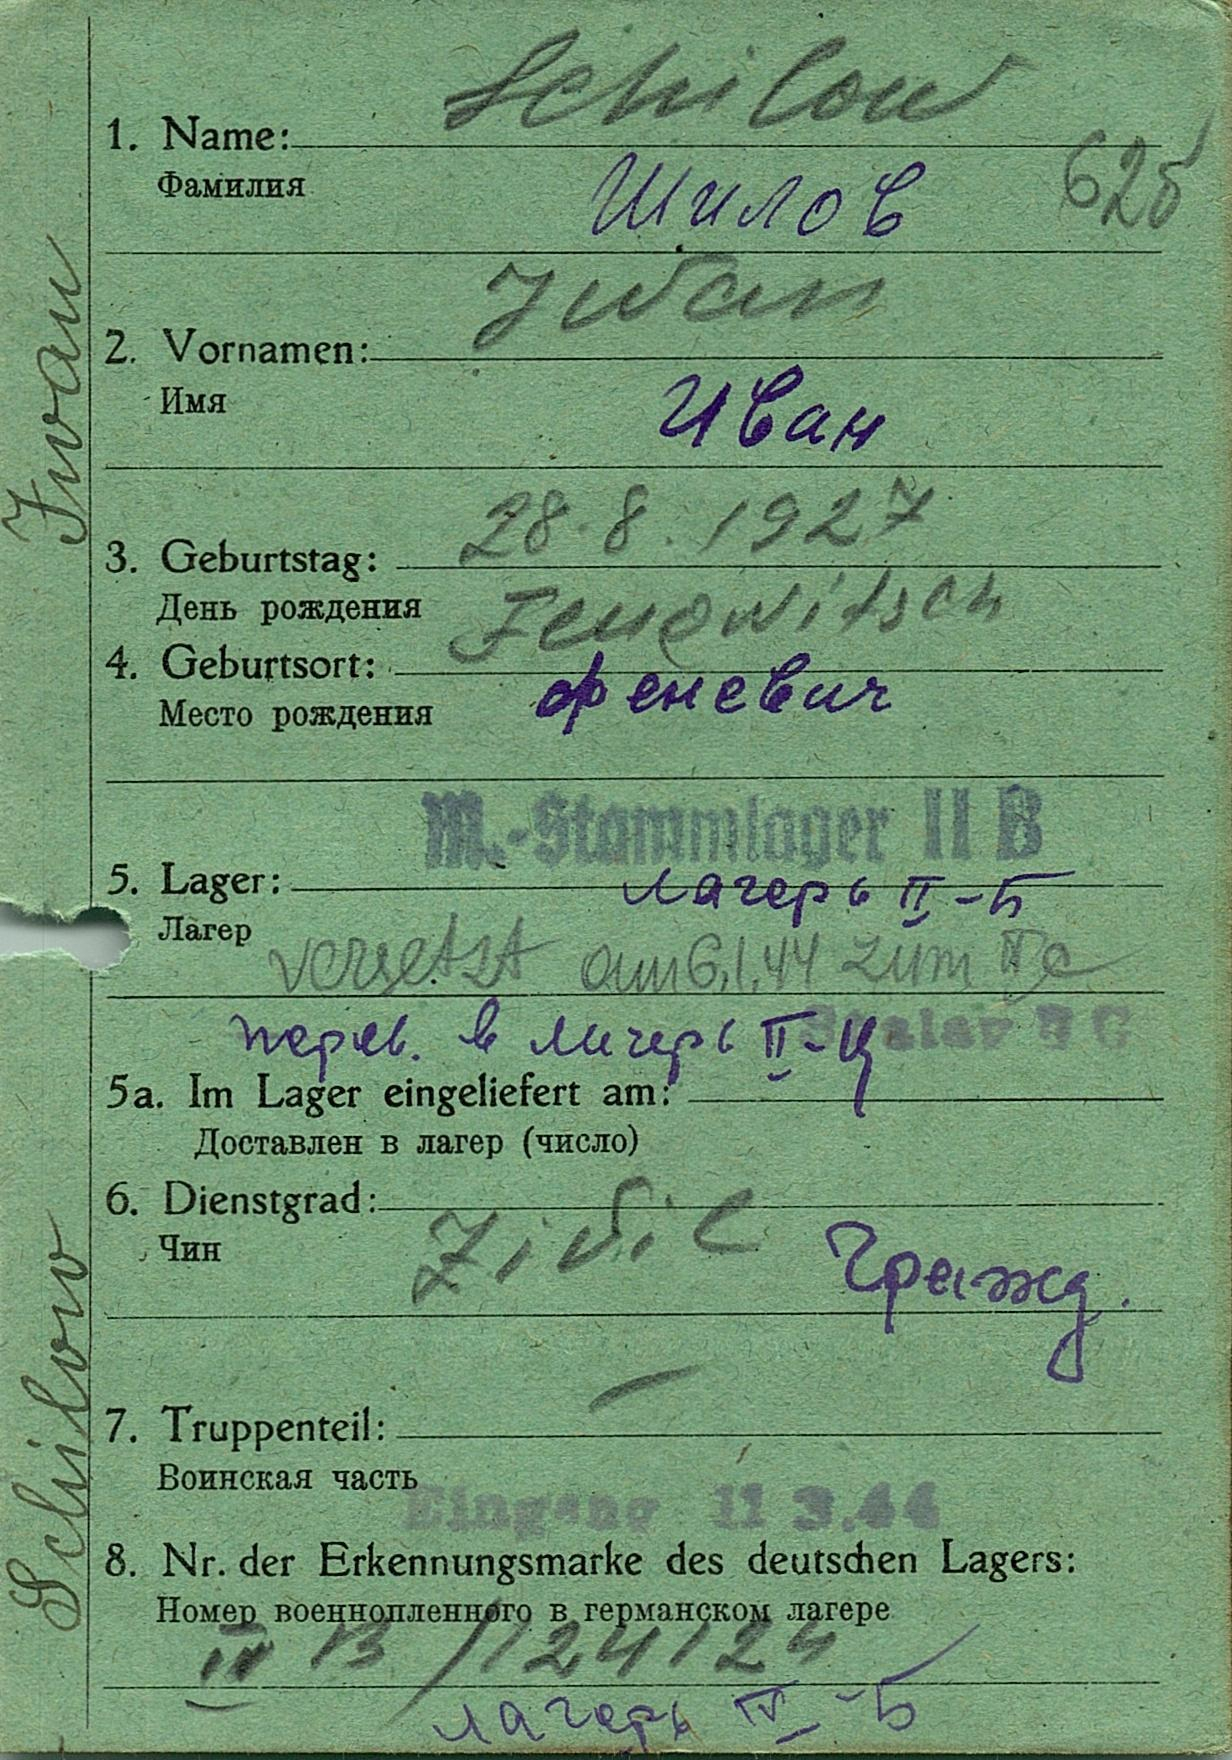 Schilow
1. Name:
Фамилия
Шилов
625
Jwan
2. Vornamen:
Имя
Иван
28.8.1927
3. Geburtstag:
День рождения
Fenewitsch
4. Geburtsort:
Место рождения
Феневич
M.-Stammlager II B
5. Lager:
лагерь II-Б
Лагер
versetzt am 6.1.44 zum II c
перев. в лагерь II-Ц
Stalag II C
5a. Im Lager eingeliefert am:
Доставлен в лагер (число)
6. Dienstgrad:
Zivil
Чин
Гражд.
—
7. Truppenteil:
Воинская часть
Eingang 11 3.44
8. Nr. der Erkennungsmarke des deutschen Lagers:
Номер военнопленного в германском лагере
B / 124124
лагерь -Б
Schilow Ivan